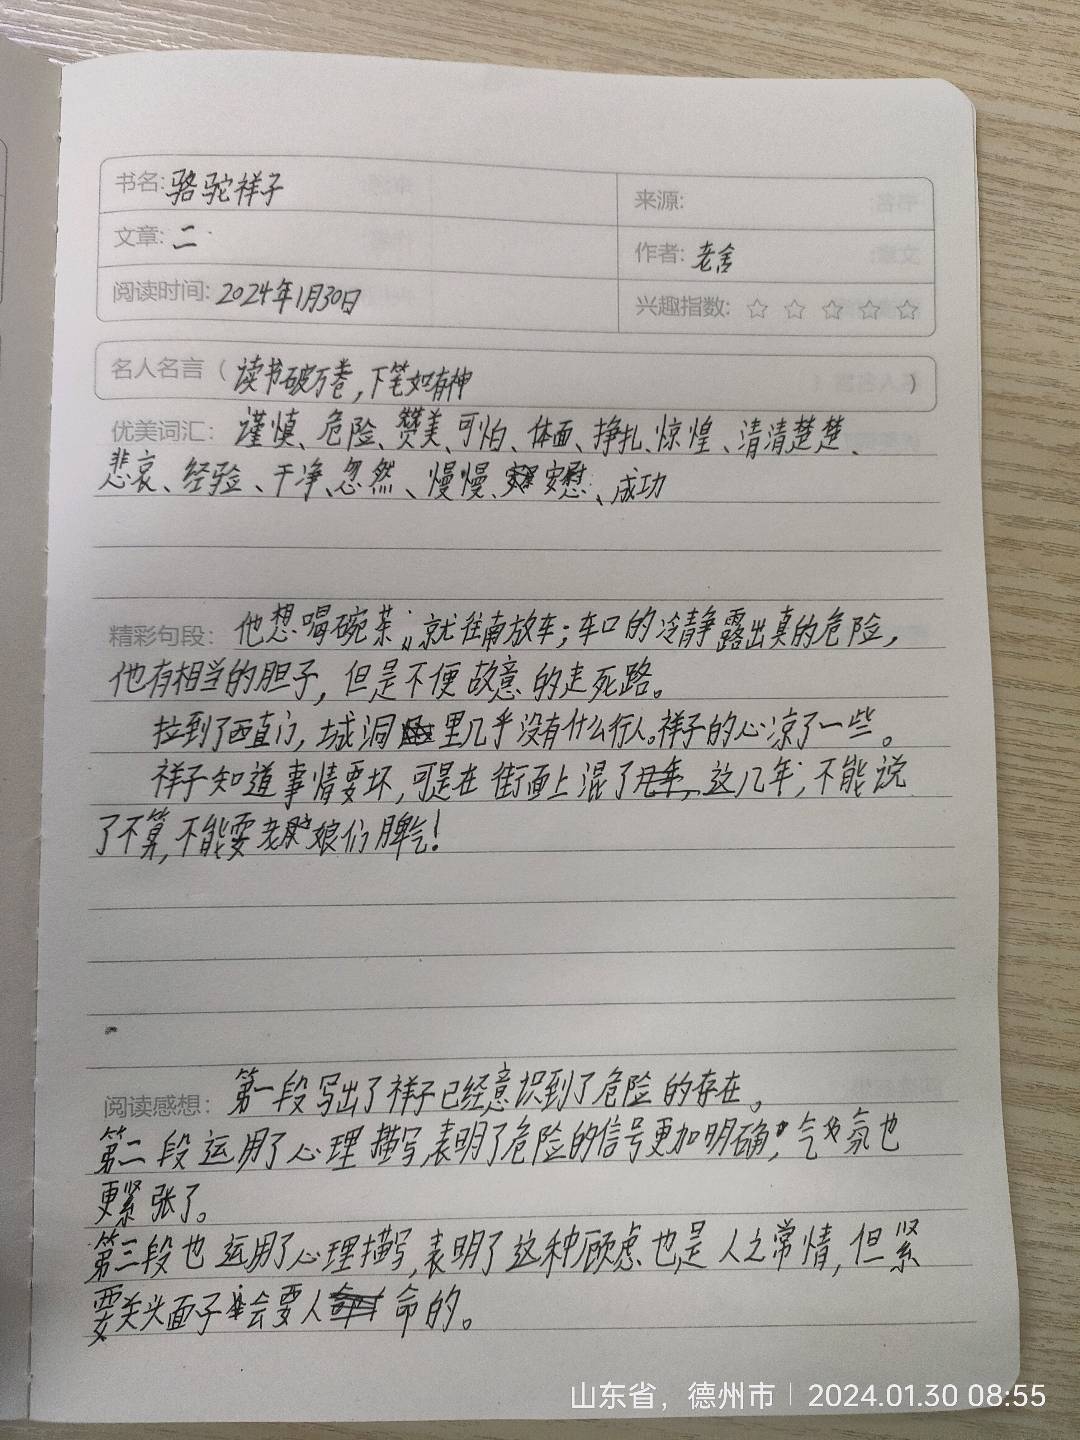 书名: 骆驼祥子
来源:
文章: 二
作者: 老舍
阅读时间: 2024年1月30日
兴趣指数: ☆ ☆ ☆ ☆ ☆
名人名言（ 读书破万卷，下笔如有神 ）
优美词汇： 谨慎、危险、赞美、可怕、体面、挣扎、惊惶、清清楚楚、
悲哀、经验、干净、忽然、慢慢、安慰、成功
精彩句段： 他想喝碗茶，就往南放车；车口的冷静露出真的危险，
他有相当的胆子，但是不便故意的走死路。
拉到了西直门，城洞里几乎没有什么行人。祥子的心凉了一些。
祥子知道事情要坏，可是在街面上混了这几年，不能说
了不算，不能耍老娘们脾气！
阅读感想： 第一段写出了祥子已经意识到了危险的存在。
第二段运用了心理描写，表明了危险的信号更加明确，气氛也
更紧张了。
第三段也运用了心理描写，表明了这种顾虑也是人之常情，但紧
要关头面子会要人命的。
山东省，德州市 | 2024.01.30 08:55